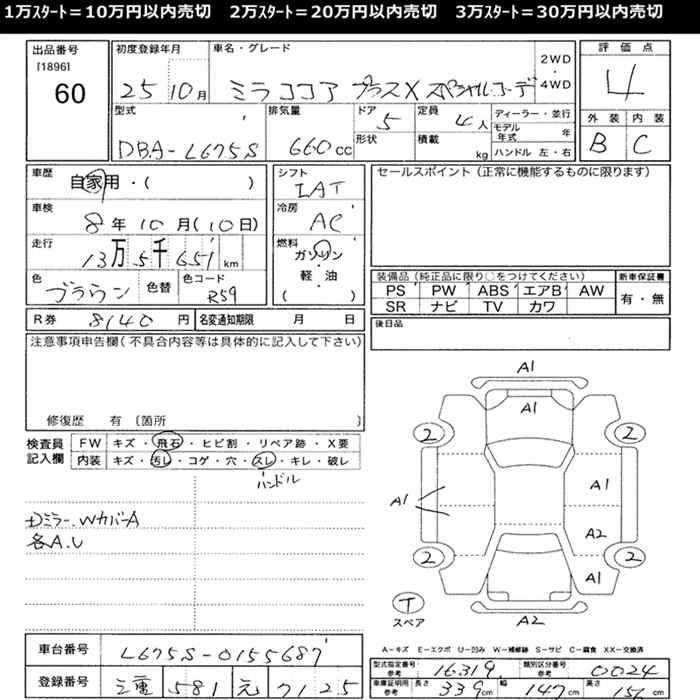 1万ｽﾀｰﾄ＝10万円以内売切　2万ｽﾀｰﾄ＝20万円以内売切　3万ｽﾀｰﾄ＝30万円以内売切
出品番号 初度登録年月 車名・グレード 2WD・4WD 評価点
[1896]
60 25 10月 ミラココア プラスX スペシャルコーデ 4
型式 排気量 ドア 定員 ディーラー・並行 外装 内装
5 4人 モデル年式 年 B C
DBA-L675S 660cc 形状 積載 kg ハンドル 左・右
車歴 自家用・( ) シフト IAT セールスポイント（正常に機能するものに限ります）
車検 8年10月(10日) 冷房 AC
走行 13万5千651km 燃料 ガソリン・軽・油 ( )
装備品（純正品に限り○をつけてください） 新車保証書
色 ブラウン 色替 色コード R59
PS PW ABS エアB AW 有・無
SR ナビ TV カワ
R券 8140円 名変通知期限 月 日 後日品
注意事項申告欄（不具合内容等は具体的に記入して下さい）
修復歴 有〔箇所 〕
検査員記入欄 FW キズ・飛石・ヒビ割・リペア跡・X要
内装 キズ・汚レ・コゲ・穴・スレ・キレ・破レ
ハンドル
Dミラー、WカバーA
各A.U
A1
A1
2 2
A1 A1
A2
2 2
A1
T
スペア A2
A-キズ E-エクボ U-凹み W-補修跡 S-サビ C-腐食 XX-交換済
車台番号 L675S-0155687
型式指定番号 参考 16319 類別区分番号 参考 0024
登録番号 三重 581 え 7125
車庫証明用 参考 長さ 339cm 幅 147cm 高さ